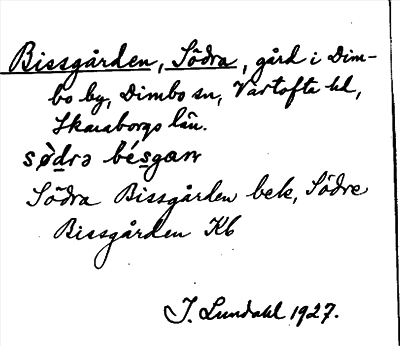 Bissgården, Södra, gård i Dim-
bo by, Dimbo sn, Vartofta hd,
Skaraborgs län.
sø̀drə bésgaɳ
Södra Bissgården bek, Södre
Bissgården Kb
I. Lundahl 1927.